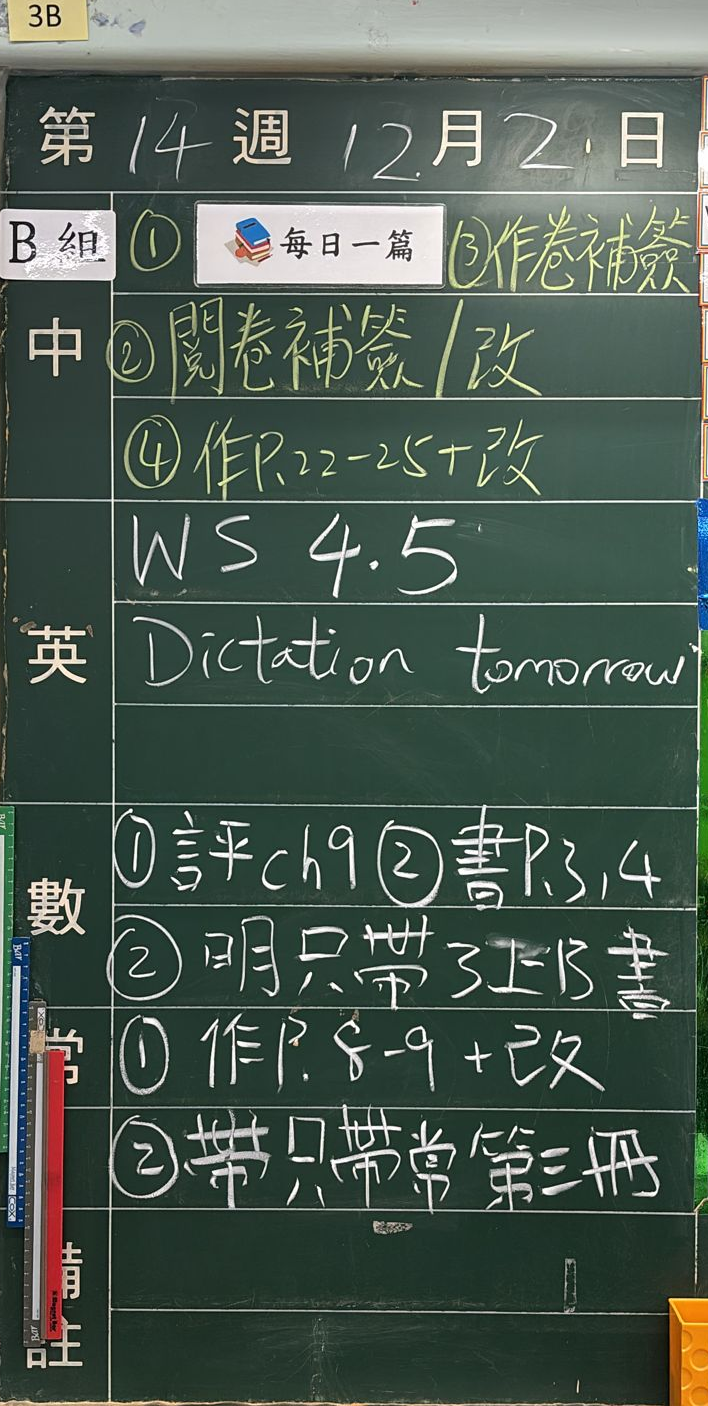 3B
第 14 週 12 月 2 日
B組 ① 每日一篇 ③作卷補簽
中 ② 閱卷補簽/改
④ 作P.22-25+改
英 WS 4.5
Dictation tomorrow
數 ①評ch9 ②書P.3,4
② 明只帶3上B書
常 ① 作P.8-9+改
② 帶只帶常第三冊
備註